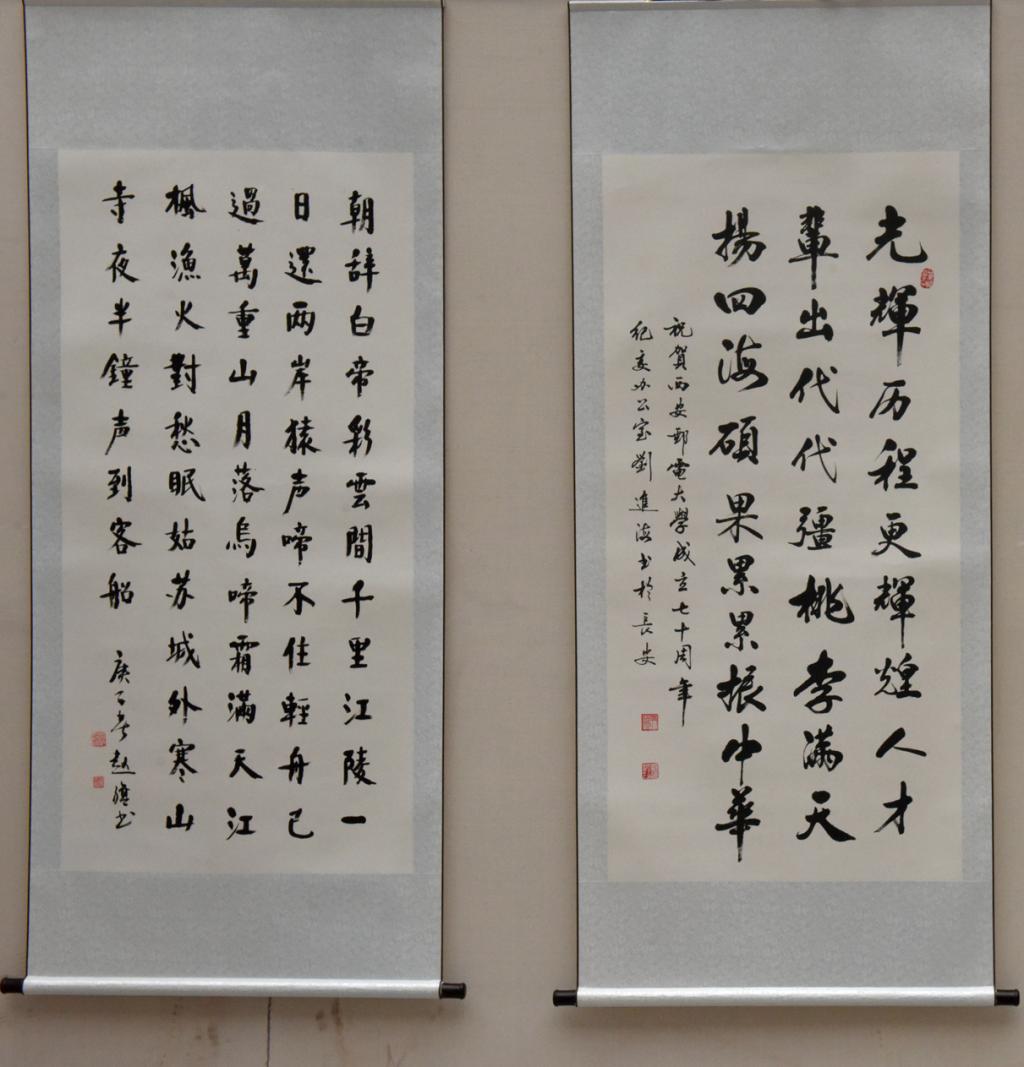 光輝历程更輝煌人才
輩出代代彊桃李滿天
揚四海碩果累累振中華
祝賀西安郵電大學成立七十周年
纪委办公室劉進海书於長安
朝辞白帝彩雲間千里江陵一
日還两岸猿声啼不住輕舟已
過萬重山月落烏啼霜滿天江
楓漁火對愁眠姑苏城外寒山
寺夜半鐘声到客船
庚子春趙书